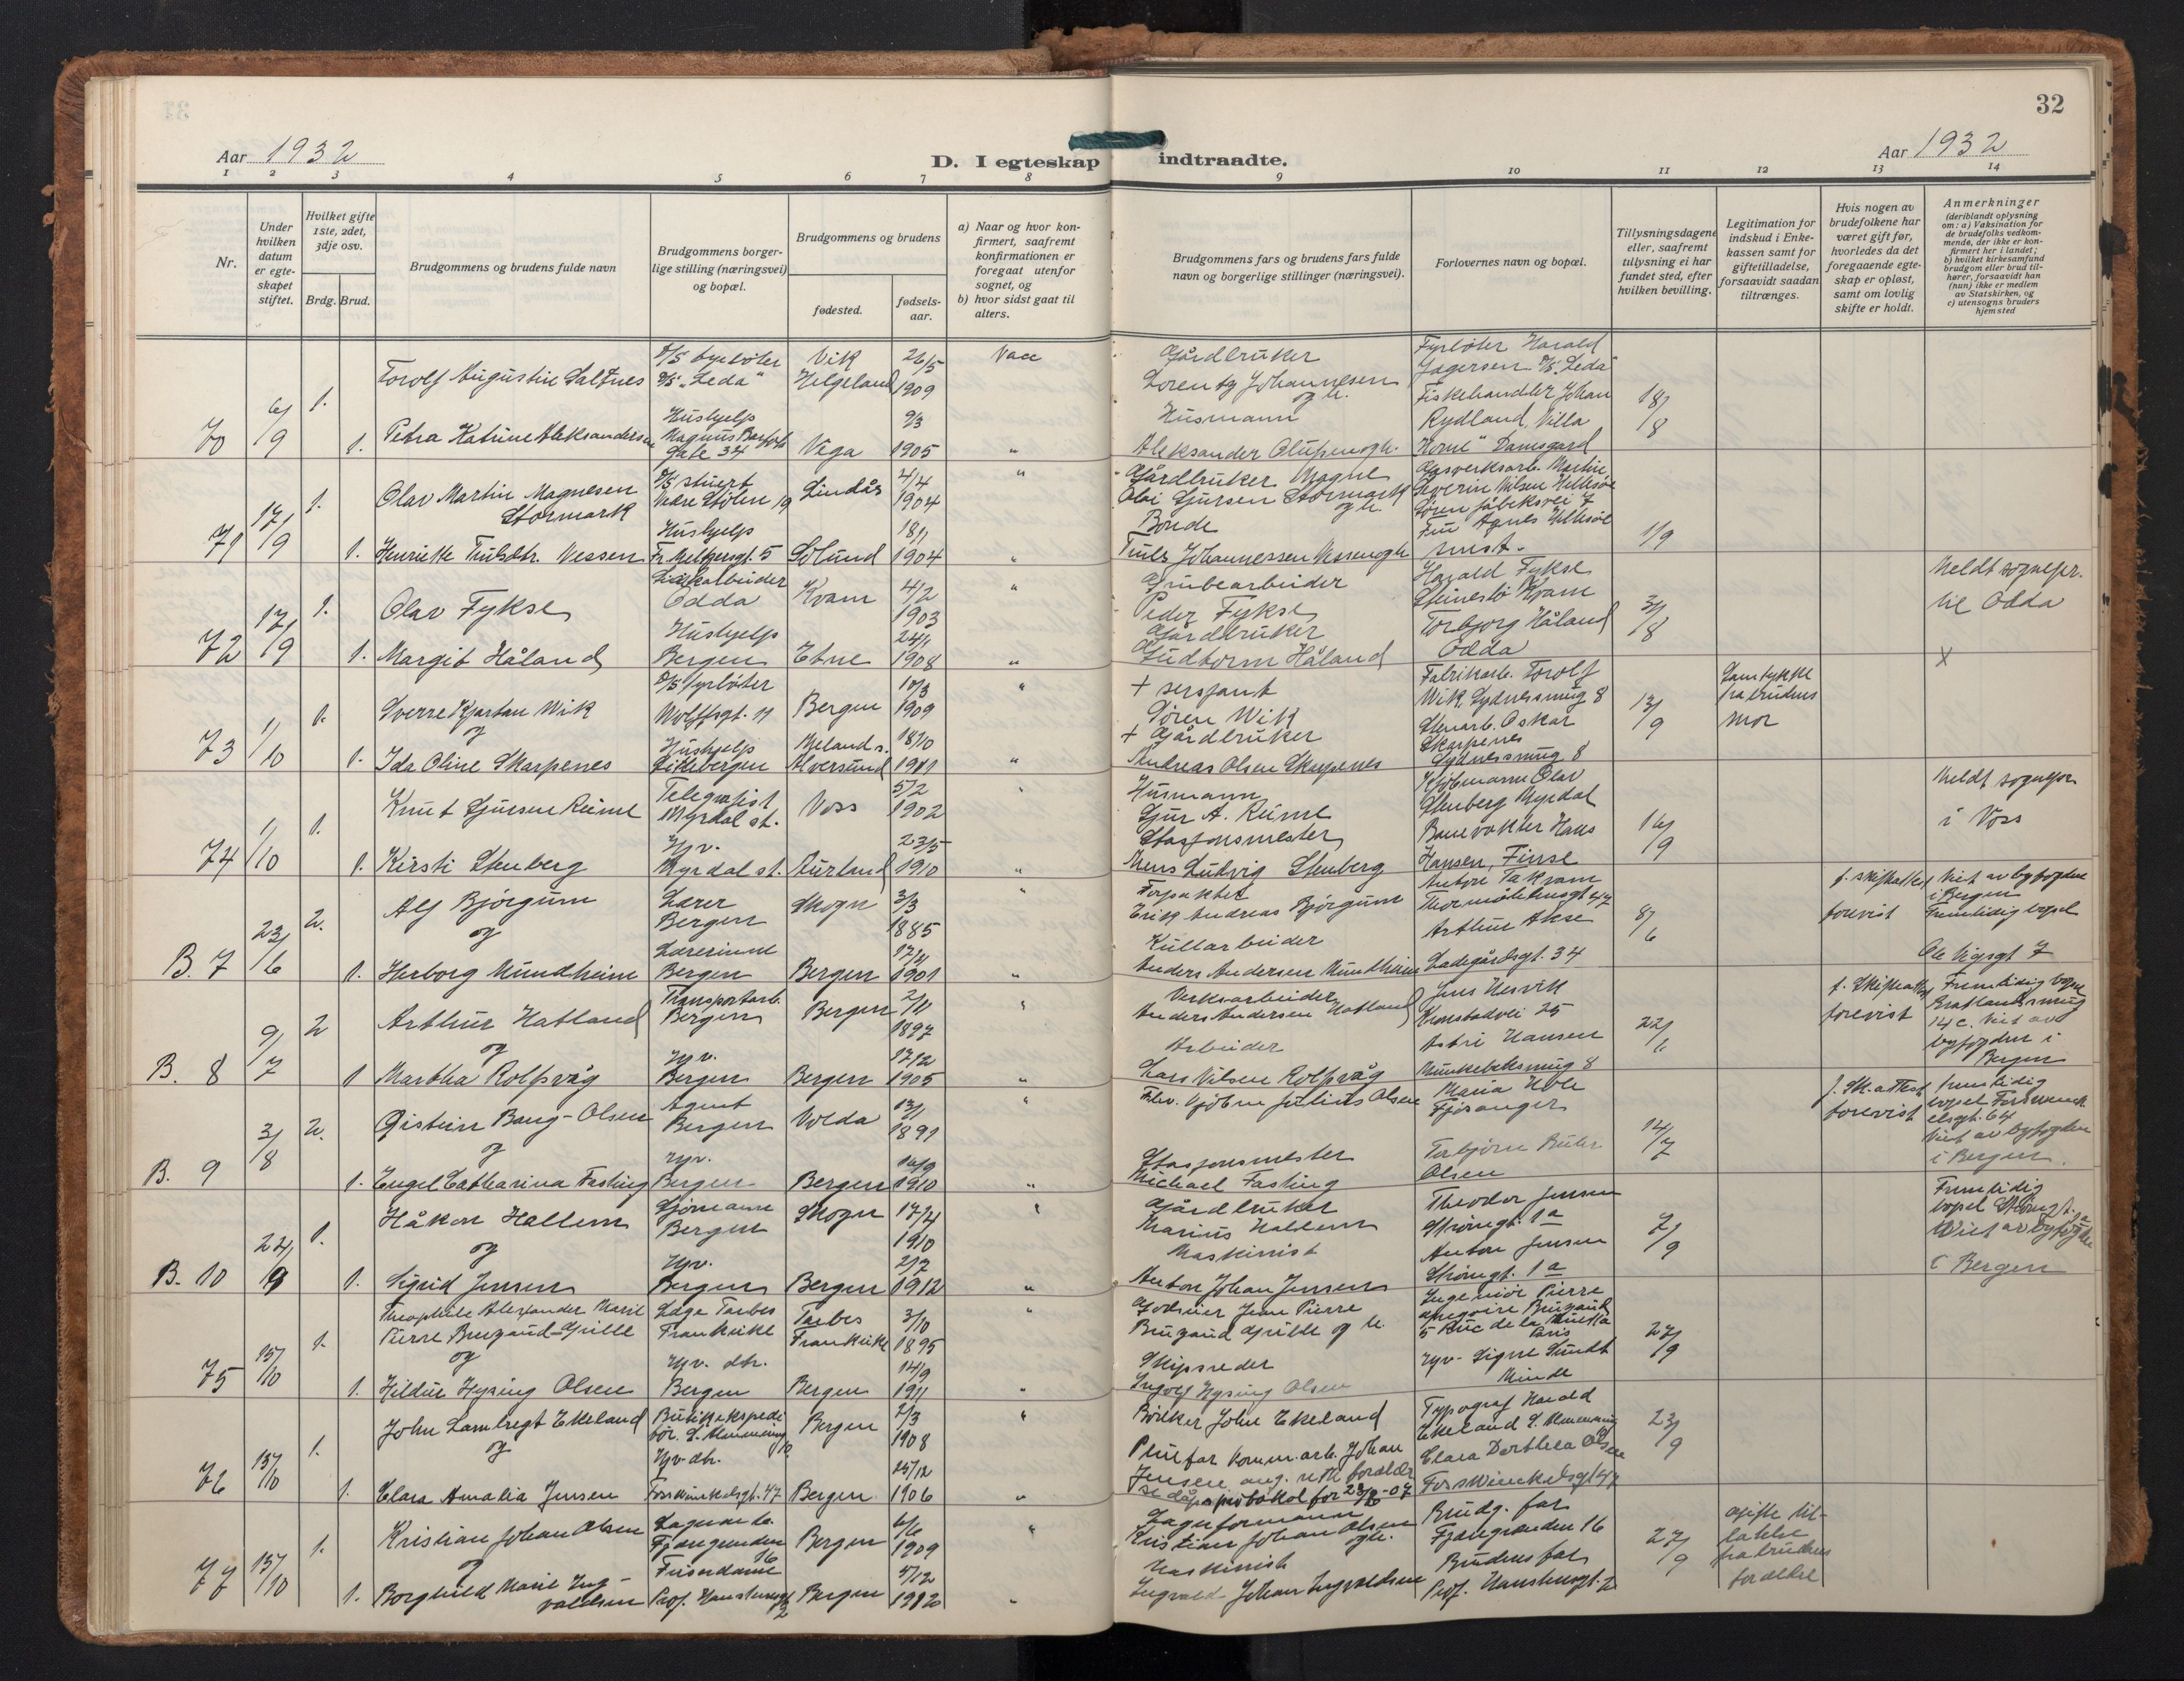 32
Aar 1932
D. I egteskap indtraadte.
Aar 1932
1 2 3 4 5 6 7 8 9 10 11 12 13 14
Nr.
Under hvilken datum er egteskapet stiftet.
Hvilket gifte 1ste, 2det, 3dje osv.
Brdg. Brud.
Brudgommens og brudens fulde navn
Brudgommens borgerlige stilling (næringsvei) og bopæl.
Brudgommens og brudens
fødested.
fødselsaar.
a) Naar og hvor konfirmert, saafremt konfirmationen er foregaat utenfor sognet, og
b) hvor sidst gaat til alters.
Brudgommens fars og brudens fars fulde navn og borgerlige stillinger (næringsvei).
Forlovernes navn og bopæl.
Tillysningsdagene eller, saafremt tillysning ei har fundet sted, efter hvilken bevilling.
Legitimation for indskud i Enkekassen samt for giftetilladelse, forsaavidt saadan tiltrænges.
Hvis nogen av brudefolkene har været gift før, hvorledes da det foregaaende egteskap er opløst, samt om lovlig skifte er holdt.
Anmerkninger
(deriblandt oplysning om: a) Vaksination for de brudefolks vedkommende, der ikke er konfirmert her i landet;
b) hvilket kirkesamfund brudgom eller brud tilhører, forsaavidt han (hun) ikke er medlem av Statskirken, og
c) utensogns bruders hjemsted
70 6/9 1. Torolf Augustin Saltnes D/S fyrbøter D/S "Leda" Vik Helgeland 26/5 1909
Gårdbruker Lorentz Johannesen og h.
Fyrbøter Harald Jagersen D/S. Leda
1. Petra Katrine Aleksandersen Hushjelp Magnus Barfots gate 34 Vega 9/3 1905 "
Husmann Aleksander Olufsen og h.
Fiskehandler Johan Rydland, Villa "Horne" Damsgard 18/8
71 17/9 1. Olav Martin Magnesen Stormark D/S stuert Lindås 4/4 1904 "
Gårdbruker Magne Stormark og h.
Gasverksarb. Martin
1. Henrikke Vessen Hushjelp Fr. Meltzersgt. 5 Solund 18/1 1904 "
Bonde Johannessen Vessen og h.
Fru Agnes 1/9
72 17/9 1. Olav Fykse Odda Kvam 4/2 1903 "
Grubearbeider Peder Fykse
Harald Fykse Steinstø Kvam
Meldt sognepr. til Odda
1. Margit Håland Hushjelp Bergen Etne 24/1 1908 "
Gårdbruker Gudtorm Håland
Torbjørg Håland Odda 31/8
X
73 1/10 1. Sverre Kjartan Wik og D/S fyrbøter Wolffsgt. 11 Bergen 10/3 1909 "
+ sersjant Søren Wik
Fabrikarb. Torolf Wik, Sydnessmug 8
Samtykke fra brudens mor
1. Ida Oline Skarpenes Hushjelp Litlebergen Meland s. Alversund 18/10 1911 "
+ Gårdbruker Andreas Olsen Skarpenes
Stenarb. Oskar Skarpenes Sydnessmug 8 13/9
74 1/10 1. Knut Sjursen Reime Telegrafist Myrdal st. Voss 5/2 1902
Husmann Sjur A. Reime
Olav Stenberg Myrdal
Meldt sognepr. i Voss
1. Kirsti Stenberg Hjv. Myrdal st. Aurland 23/5 1910 "
Stasjonsmester Mons Ludvig Stenberg
Banevokter Hans Hansen, Finse 16/9
B. 7 23/6 2. Alf Bjørgum og Lærer Bergen Skogn 3/3 1885 "
Forpakter Erik Andreas Bjørgum
Anton Takvam Thormøhlensgt 47
f. skifteattest forevist
Viet av byfogden i Bergen Fremtidig bopel Ole Vigsgt 7
1. Herborg Mundheim Lærerinne Bergen Bergen 1901 "
Kullarbeider Anders Andersen Mundheim
Arthur Akse Ladegårdsgt. 34 8/6
B. 8 9/7 2 Arthur Hatland og Transportarb. Bergen Bergen 2/11 1897
Verksarbeider Anders Andersen Hatland
Jens Hesvik Kronstadvei 25
f. Skifteattest forevist
Fremtidig bopel Bratlandsmug 14 c. Viet av byfogden i Bergen
1 Martha Rolfsvåg Hjv. Bergen Bergen 17/12 1905 "
Arbeider Lars Nilsen Rolfsvåg
Astri Hansen Munkebeksmug 8 22/6
B. 9 3/8 2. Øistein Bang-Olsen og Agent Bergen Volda 13/1 1891 "
Julius Olsen
Maria Hole Fjøsanger
f. Sk. attest forevist
fremtidig bopel 64 Viet av byfogden i Bergen.
1. Engel Catharina Fasting Hjv. Bergen Bergen 16/9 1910 "
Stasjonsmester Michael Fasting
Torbjørn Olsen 14/7
B. 10 24/9 1. Håkon Hallem og Sjømann Bergen Skogn 17/4 1910
Gårdbruker Marius Hallem
Theodor Jensen Strømgt. 1a
Fremtidig bopel Strømgt. 1a Viet av byfogden i Bergen
1. Sigrid Jensen Hjv. Bergen Bergen 2/7 1912 "
Maskinist Anton Johan Jensen
Anton Jensen Strømgt. 1a 7/9
75 15/10 1. Theophile Alexander Marie Pierre Brugaud-Grille og Tarbes Frankrike Tarbes Frankrike 3/10 1895 "
Godseier Jean Pierre Brugaud Grille og h.
Ingeniør Pierre Gregoire Brugaud 5 Rue de la Paris
1. Hildur Hysing Olsen Hjv. dtr. Bergen Bergen 14/9 1911 "
Skipsreder Ingolf Hysing Olsen
Hjv. Signe Sundt Minde 27/9
76 15/10 1. John Lambregt Ekeland og Butikekspeditør. Bergen 2/3 1908 "
Bøkker John Ekeland
Typograf Harald Ekeland
1. Clara Amalia Jensen Hjv. dtr. 47 Bergen 25/12 1906 "
Pleiefar Komm. arb. Johan Jensen ang. rette foreldre se dåpsprotokol for 23/6-07
Clara Dorthea Olsen 47 23/9
77 15/10 1. Kristian Johan Olsen og Lagerarb. Fjæregrenden 16 Bergen 6/6 1909 "
Lagerformann Kristian Johan Olsen og h.
Brudg. far Fjæregrenden 16
Gifte tillatelse fra brudens foreldre
1. Borghild Marie Ingvaldsen Friserdame Prof. Hansteensgt 2 Bergen 5/12 1912 "
Maskinist Ingvald Johan Ingvaldsen
Brudens far Prof. Hansteensgt. 2 27/9